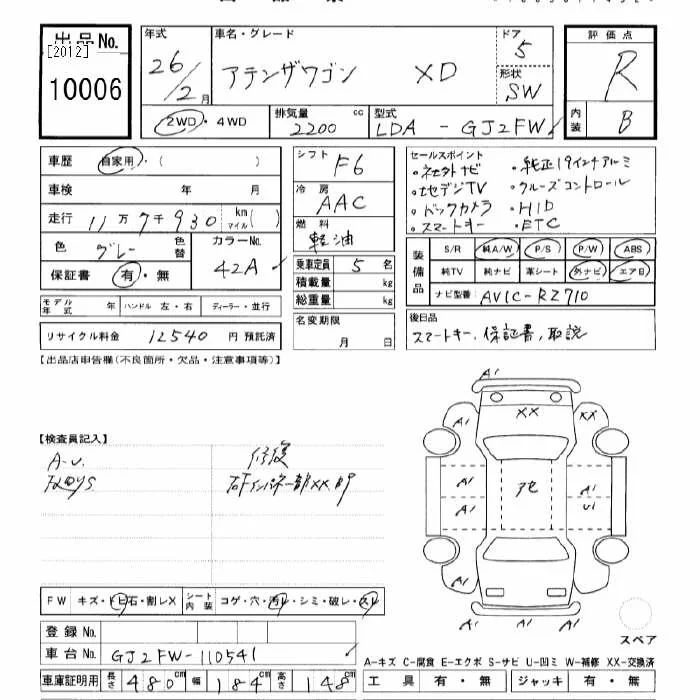 出品No.
[2012]
10006
年式
26/2月
車名・グレード
アテンザワゴン XD
ドア
5
形状
SW
評価点
R
内装
B
2WD・4WD
排気量
2200 cc
型式
LDA - GJ2FW
車歴 自家用・( )
車検 年 月
走行 11万7千930 km マイル( )
色 グレー 色替
カラーNo.
42A
保証書 有・無
モデル年式 年 ハンドル 左・右 ディーラー・並行
リサイクル料金 12540 円 預託済
シフト
F6
冷房
AAC
燃料
軽油
乗車定員 5 名
積載量 kg
総重量 kg
名変期限
月 日
セールスポイント
・社外ナビ ・純正19インチアルミ
・地デジTV ・クルーズコントロール
・バックカメラ ・HID
・スマートキー ・ETC
装備品
S/R 純A/W P/S P/W ABS
純TV 純ナビ 革シート 外ナビ エアB
ナビ型番 AVIC-RZ710
後日品
スマートキー、保証書、取説
【出品店申告欄(不良箇所・欠品・注意事項等)】
【検査員記入】
A-U. 修復
XX
A1
A1
XX
XX
A1
A1
アセ
A1
A1
U1
A1
A1
A1
A1
スペア
FW キズ・トビ石・割レX シート内装 コゲ・穴・汚レ・シミ・破レ・スレ
登録No.
車台No. GJ2FW-110541
車庫証明用 長さ 480 cm 幅 184 cm 高さ 148 cm
A-キズ C-腐食 E-エクボ S-サビ U-凹ミ W-補修 XX-交換済
工具 有・無 ジャッキ 有・無